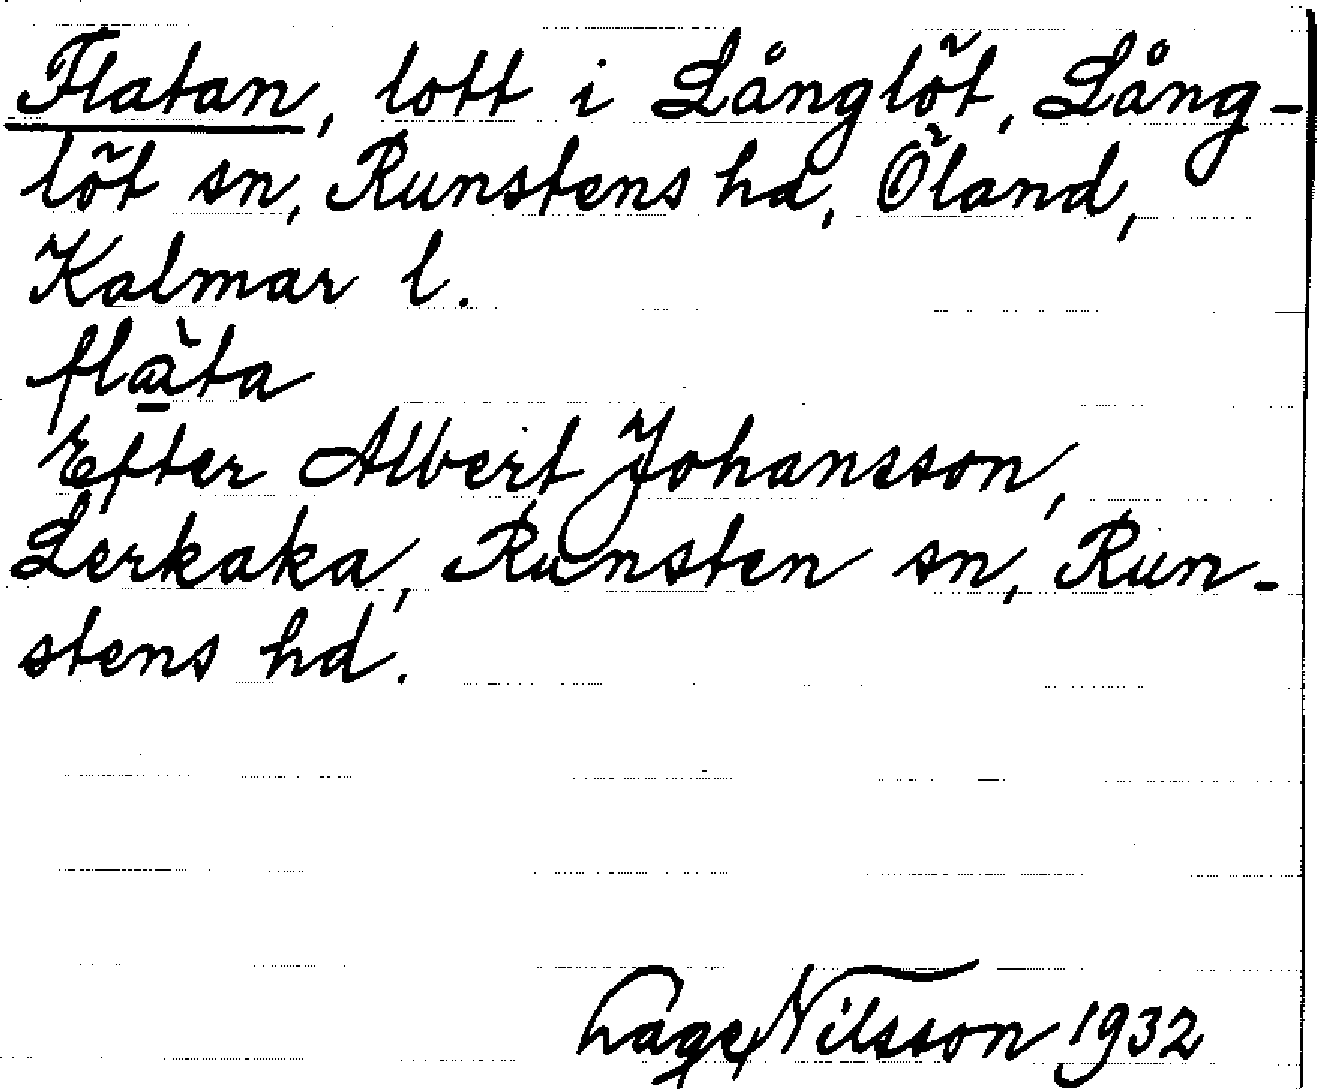 Flatan, lott i Långlöt, Lång-
löt sn, Runstens hd, Öland,
Kalmar l.
flà̱ta
Efter Albert Johansson,
Lerkaka, Runsten sn, Run-
stens hd.
Lage Nilsson 1932